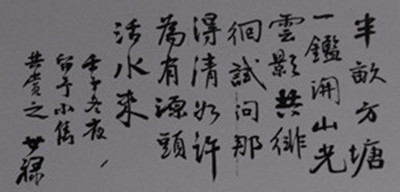 半畝方塘
一鑑開山光
雲影共徘
徊試問那
得清如許
為有源頭
活水來
壬午冬夜
留予小雋
共賞之 世祿